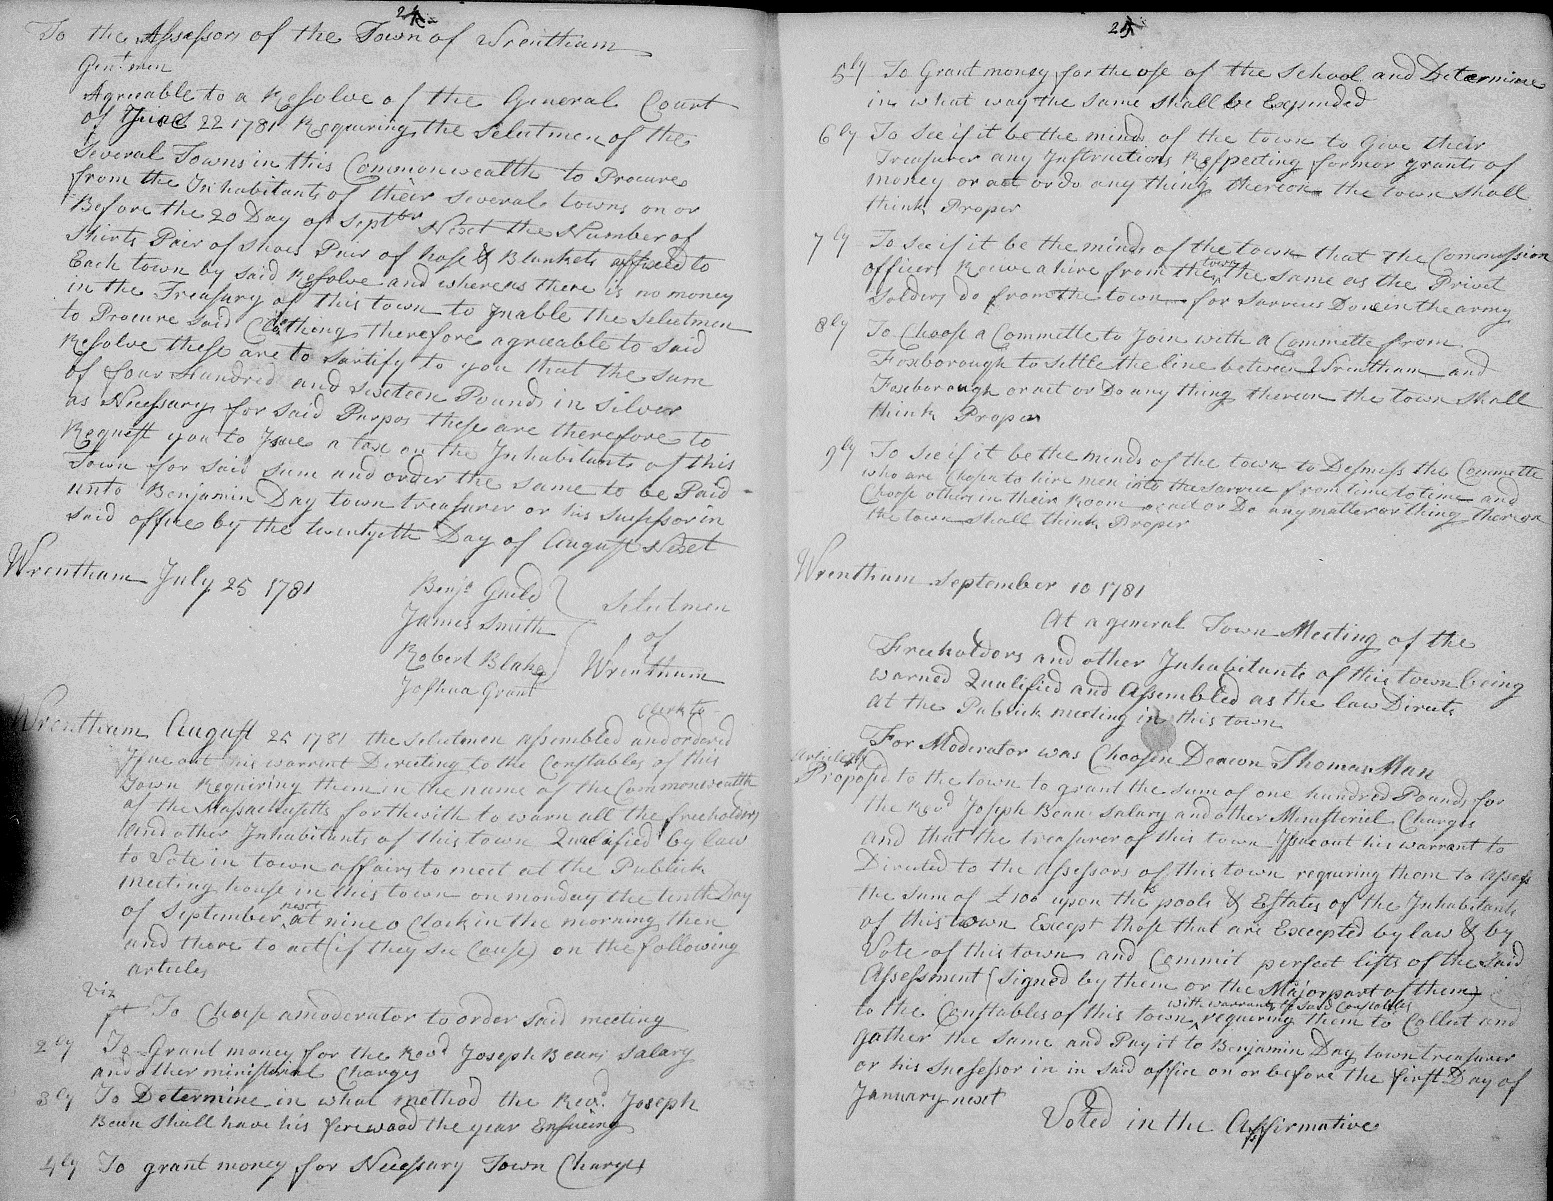 24
To the Assessors of the Town of Wrentham
Gentmen
Agreeable to a Resolve of the General Court
of June 22 1781 Requiring the Selectmen of the
Several Towns in this Commonwealth to Procure
from the Inhabitants of their Several towns on or
Before the 20 Day of Septbr Next the Number of
Shirts Pair of Shoes Pair of hose & Blankets affixed to
Each town by said Resolve and whereas there is no money
in the Treasury of this town to Inable the Selectmen
to Procure said Clothing therefore agreeable to said
Resolve these are to Sartify to you that the Sum
of four Hundred and Sixteen Pounds in Silver
as Necessary for said Purpos these are therefore to
Request you to Isue a tax on the Inhabitants of this
Town for said Sum and order the same to be Paid
unto Benjamin Day town treasurer or his Sucsessor in
said office by the twentyeth Day of August Next
Wrentham July 25 1781
Benja Guild
James Smith
Robert Blake
Joshua Grant
Selectmen
of
Wrentham
Clerk to
Wrentham August 25 1781 the Selectmen assembled and ordered
Issue out his warrent Directing to the Constables of this
Town Requiring them in the name of the Commonwealth
of the Massachusetts forthwith to warn all the freeholders
and other Inhabitants of this town Qualified by law
to Vote in town affairs to meet at the Publick
meeting house in this town on monday the tenth Day
of September next at nine o Clock in the morning then
and there to act (if they see Cause) on the following
articles
Viz
1st To Chose a moderator to order said meeting
2ly To Grant money for the Revd Joseph Beans Salary
and other ministerial Charges
3ly To Determine in what method the Revd. Joseph
Bean Shall have his ferewood the year Ensueing
4ly To grant money for Necessary Town Charges
25
5ly To Grant money for the use of the School and Determine
in what way the same shall be Expended
6ly To see if it be the minds of the town to Give their
Treasurer any Instructions Respecting former grants of
money or act or do any thing thereon the town shall
think Proper
7ly To see if it be the minds of the town that the Commossion
officers Receive a hire from the town the same as the Privet
Solders do from the town for Sarvices Done in the army
8ly To Choose a Committe to Join with a Committe from
Foxborough to settle the line between Wrentham and
Foxborough or act or Do any thing thereon the town shall
think Proper
9ly To see if it be the minds of the town to Desmess the Committe
who are Chosen to hire men into the Sarvice from time to time and
Choose others in their Room or act or Do any matter or thing thereon
the town shall think Proper
Wrentham September 10 1781
At a general Town Meeting of the
Freeholders and other Inhabitants of this town being
warned Qualified and Assembled as the law Directs
at the Publick meeting in this town
For Moderator was Choosen Deacon Thomas Man
Article 2d
Proposd to the town to grant the sum of one hundred Pounds for
the Revd Joseph Beans Salary and other Ministeriel Charges
and that the treasurer of this town Issue out his warrant to
Directed to the Assessors of this town requiring them to Assess
the sum of £100 upon the pools & Estates of the Inhabitants
of this town Except those that are Excepted by law & by
Vote of this town and Commit perfect lists of the said
Assessment (Signed by them or the Major part of them)
with warrants to said Constables
to the Constables of this town requiring them to Collect and
gather the same and Pay it to Benjamin Day town treasurer
or his Sucsessor in in said office on or before the first Day of
January next
Voted in the Affirmative